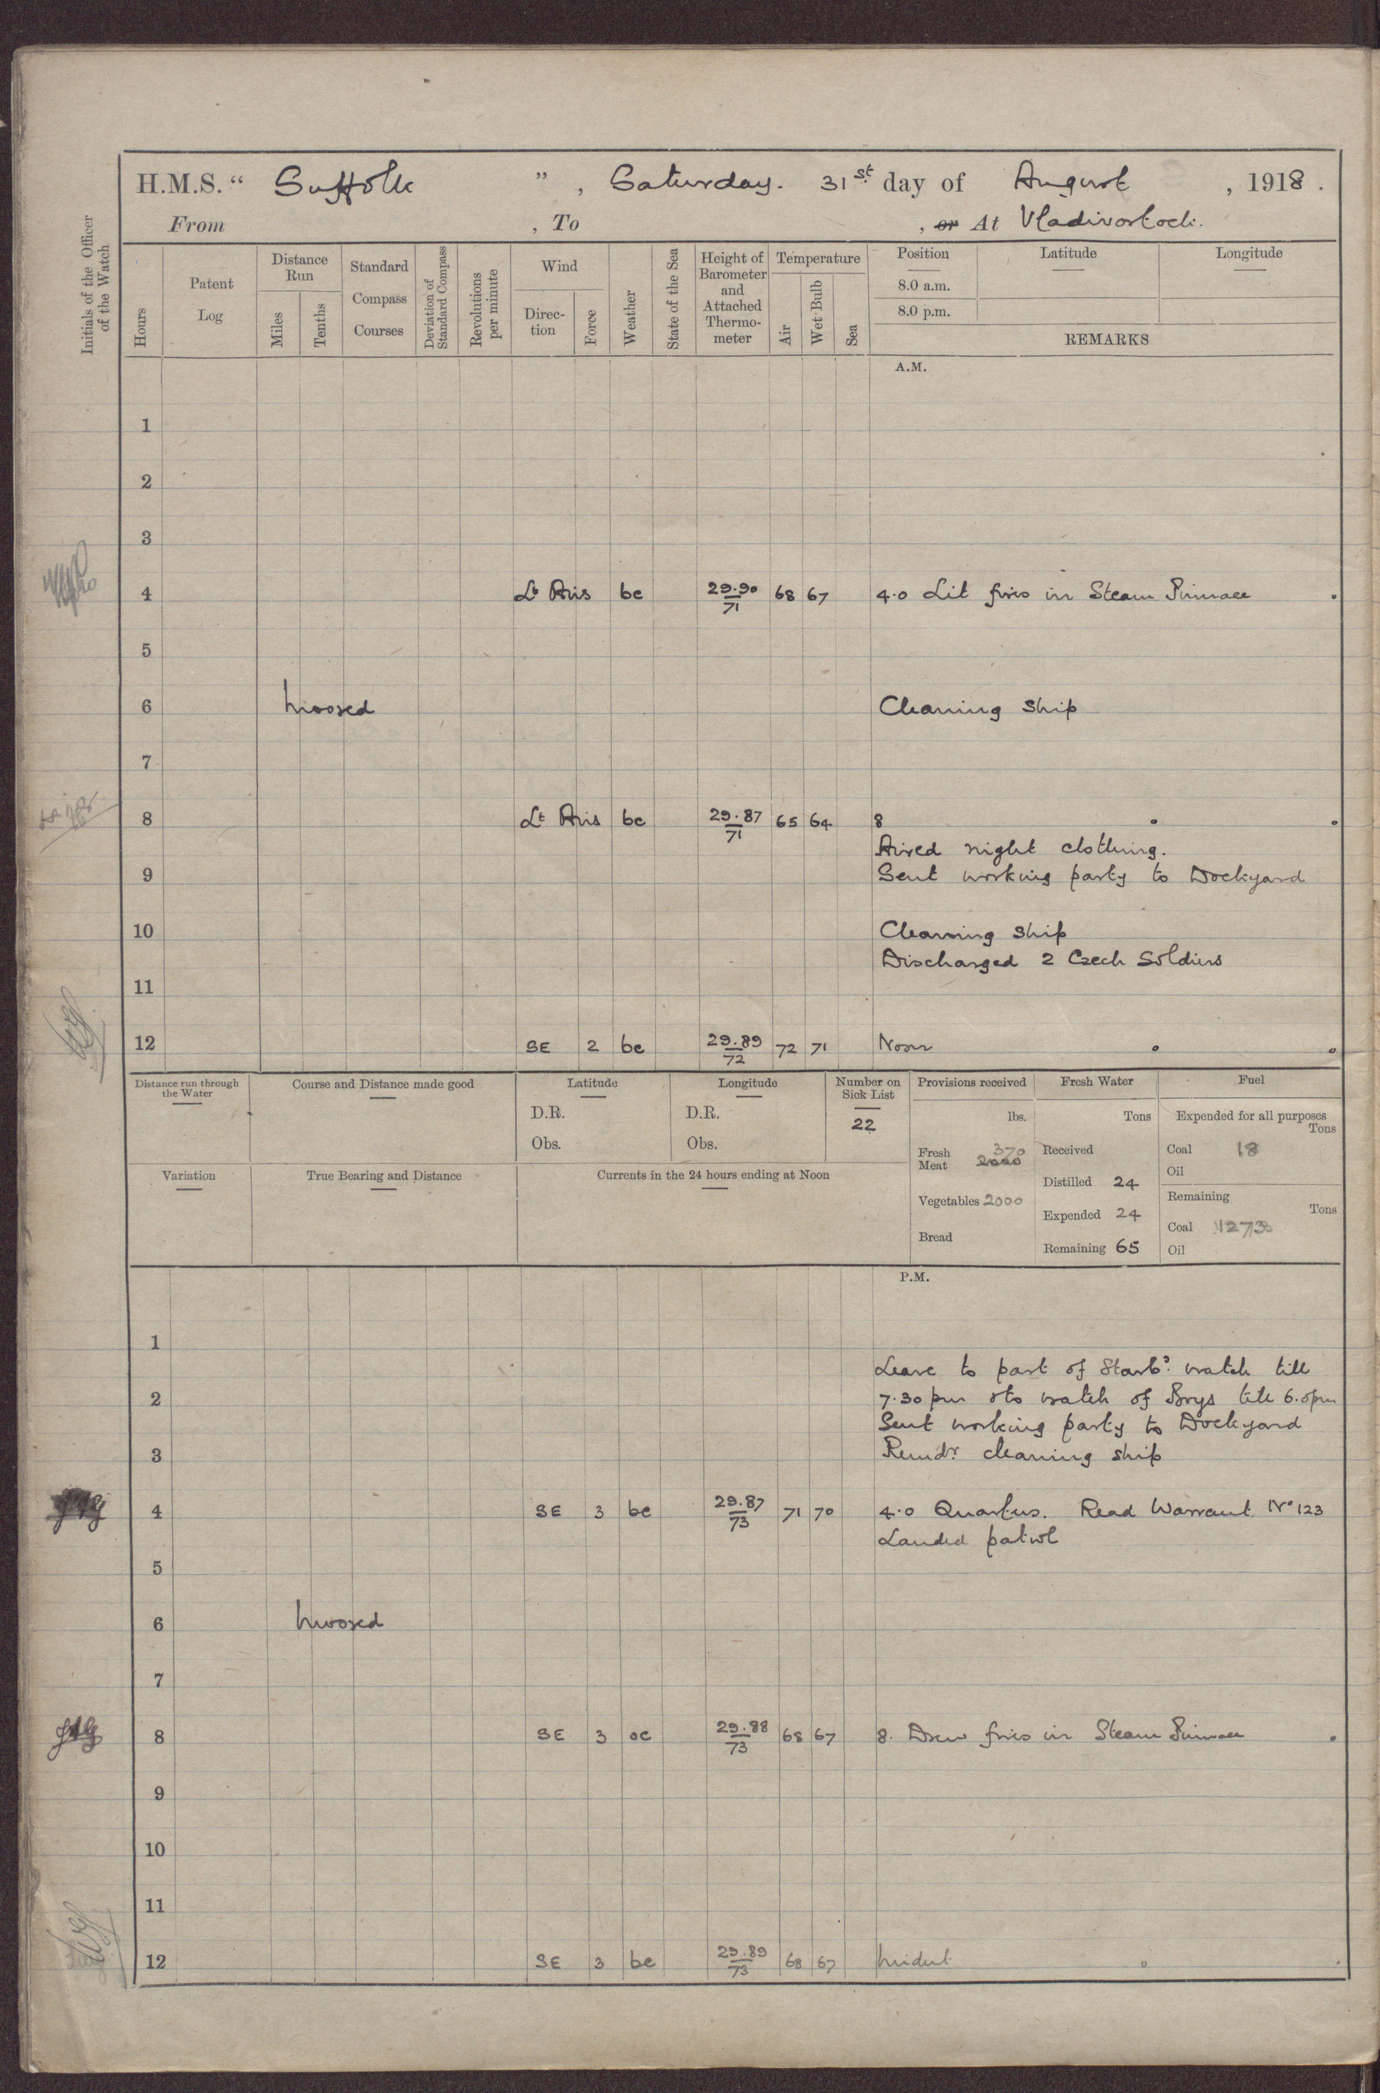 H.M.S. “ Suffolk ” , Saturday. 31st day of August , 1918 .
From , To , or At Vladivostock.
Initials of the Officer of the Watch
Hours
Patent Log
Distance Run
Miles
Tenths
Standard Compass Courses
Deviation of Standard Compass
Revolutions per minute
Wind
Direction
Force
Weather
State of the Sea
Height of Barometer and Attached Thermometer
Temperature
Air
Wet Bulb
Sea
Position
8.0 a.m.
8.0 p.m.
Latitude
Longitude
REMARKS
A.M.
1
2
3
4 Lt Airs bc 29.90 71 68 67 4.0 Lit fires in Steam Pinnace
5
6 Moored Cleaning Ship
7
8 Lt Airs bc 29.87 71 65 64 8
Aired night clothing.
9 Sent working party to Dockyard
10 Cleaning Ship
Discharged 2 Czech Soldiers
11
12 SE 2 bc 29.89 72 72 71 Noon
Distance run through the Water
Course and Distance made good
Latitude
D.R.
Obs.
Longitude
D.R.
Obs.
Number on Sick List
22
Provisions received
lbs.
Fresh Meat 2000 370
Vegetables 2000
Bread
Fresh Water
Tons
Received
Distilled 24
Expended 24
Remaining 65
Fuel
Expended for all purposes
Tons
Coal 18
Oil
Remaining
Tons
Coal 1273
Oil
Variation
True Bearing and Distance
Currents in the 24 hours ending at Noon
P.M.
1
Leave to part of Starbd. watch till
2 7.30 pm & to watch of Boys till 6.0pm
Sent working party to Dockyard
3 Remdr. cleaning ship
4 SE 3 bc 29.87 73 71 70 4.0 Quarters. Read Warrant No 123
Landed patrol
5
6 Moored
7
8 SE 3 oc 29.88 73 68 67 8. Drew fires in Steam Pinnace
9
10
11
12 SE 3 bc 29.89 73 68 67 Midnt